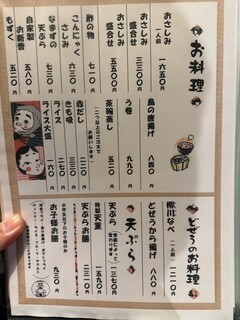 お料理
おさしみ 一人前 一六五〇円
おさしみ盛合せ 三五〇〇円
おさしみ盛合せ 五五〇〇円
酢の物 七一〇円
こんにゃくさしみ 六三〇円
なまずの天ぷら 七五〇円
自家製お新香 五八〇円
もずく 五二〇円
鳥の唐揚げ 八四〇円
う巻 九九〇円
茶碗蒸し
(二つ以上のご注文でお願いします)
赤だし 二一〇円
きも吸 二七〇円
ライス 二一〇円
ライス大盛 二六〇円
どぜうのお料理
柳川なべ (一人前) 一二一〇円
どぜうから揚げ 八八〇円
天ぷら
天ぷら 一三七〇円
特製天重 一五九〇円
天ぷらお膳
お子様お膳 九三〇円